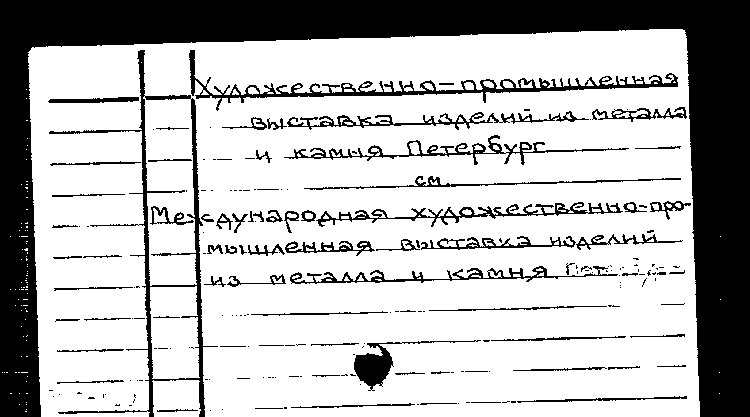 Художественно-промышленная
выставка изделий из металла
и камня. Петербург
см.
Международная художественно-про-
мышленная выставка изделий
из металла и камня